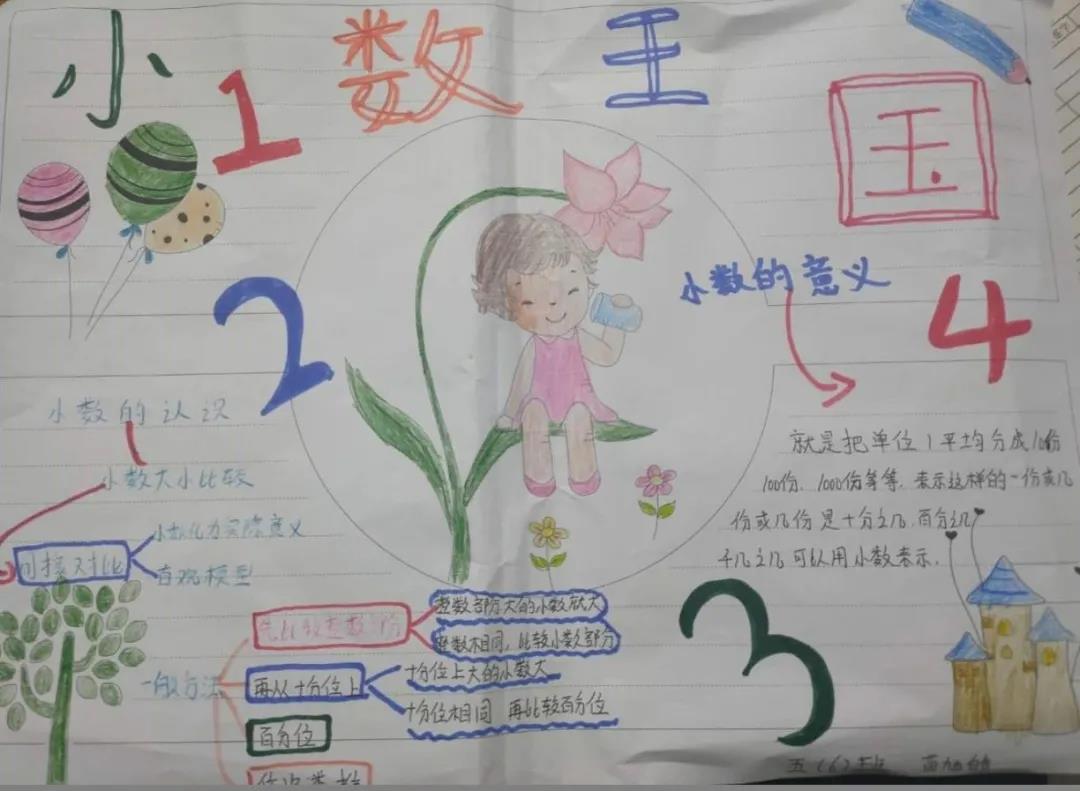 小数王国
1
2
小数的意义
4
小数的认识
小数大小比较
就是把单位1平均分成10份
100份、1000份等等，表示这样的一份或几
份或几份是十分之几，百分之几
千几之几可以用小数表示．
间接对比
直观模型
3
一般方法
先比较整数部分
整数部分大的小数就大
整数相同，比较小数部分
再从十分位上
十分位上大的小数大
十分位相同 再比较百分位
百分位
依次类推
五（6）班